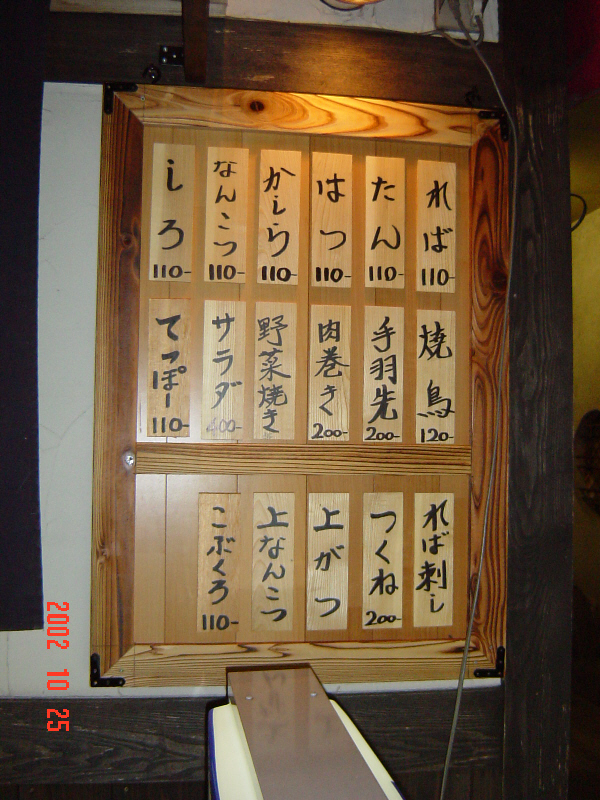 れば 110-
たん 110-
はつ 110-
かしら 110-
なんこつ 110-
しろ 110-
焼鳥 120-
手羽先 200-
肉巻き 200-
野菜焼き
サラダ 400-
てっぽー 110-
れば刺し
つくね 200-
上がつ
上なんこつ
こぶくろ 110-
2002 10 25